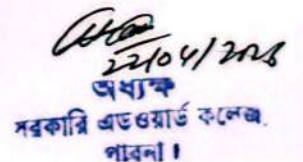 22/04/2026
অধ্যক্ষ
সরকারি এডওয়ার্ড কলেজ,
পাবনা।